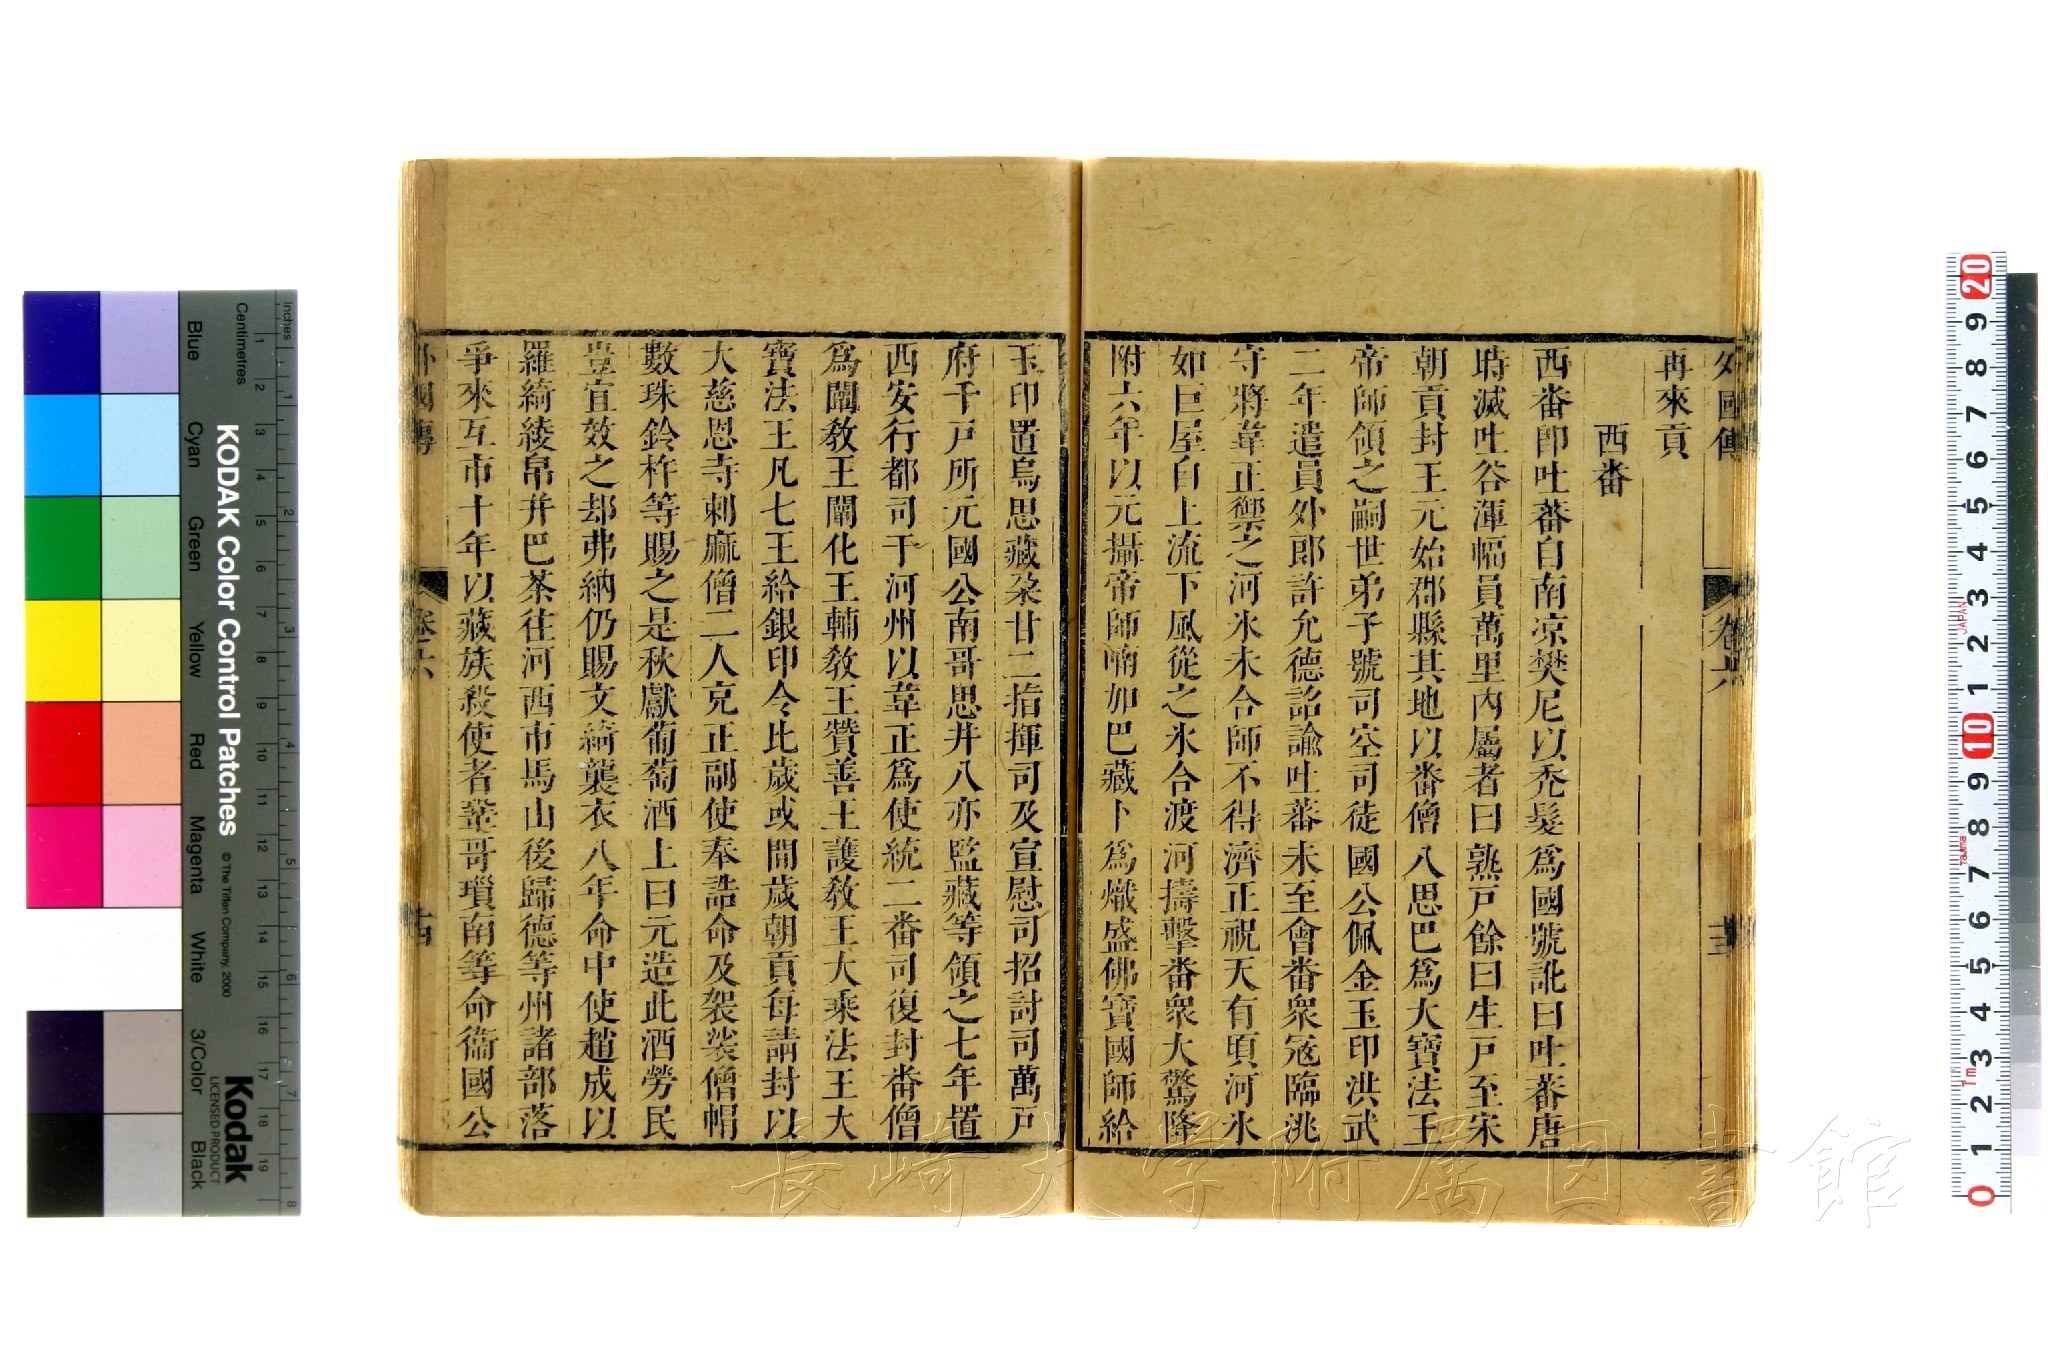 外國傳 卷六 十三
再來貢
西番
西番卽吐蕃自南凉樊尼以禿髮爲國號訛曰吐蕃唐
時滅吐谷渾幅員萬里内屬者曰熟戸餘曰生戸至宋
朝貢封王元始郡縣其地以番僧八思巴爲大寶法王
帝師領之嗣世弟子號司空司徒國公佩金玉印洪武
二年遣員外郎許允德詔諭吐蕃未至會番衆寇臨洮
守將韋正禦之河氷未合師不得濟正祝天有頃河氷
如巨屋自上流下風從之氷合渡河擣擊番衆大驚降
附六年以元攝帝師喃加巴藏卜爲熾盛佛寶國師給
玉印置烏思藏朶甘二指揮司及宣慰司招討司萬戸
府千戸所元國公南哥思丼八亦監藏等領之七年置
西安行都司于河州以韋正爲使統二番司復封番僧
爲闡敎王闡化王輔敎王贊善王護敎王大乘法王大
寶法王凡七王給銀印令比歲或間歲朝貢每請封以
大慈恩寺剌麻僧二人克正副使奉誥命及袈裟僧帽
數珠鈴杵等賜之是秋獻葡萄酒上曰元造此酒勞民
豈宜效之却弗納仍賜文綺襲衣八年命中使趙成以
羅綺綾帛幷巴茶往河西市馬山後歸德等州諸部落
爭來互市十年以藏族殺使者鞏哥瑣南等命衞國公
外國傳 卷六 十四
長崎大学附属図書館
KODAK Color Control Patches © The Tiffen Company, 2000
Kodak
LICENSED PRODUCT
Inches
Centimetres
Blue Cyan Green Yellow Red Magenta White 3/Color Black
1 2 3 4 5 6 7 8
1 2 3 4 5 6 7 8 9 10 11 12 13 14 15 16 17 18 19
0 1 2 3 4 5 6 7 8 9 10 1 2 3 4 5 6 7 8 9 20
1m Tajima JAPAN